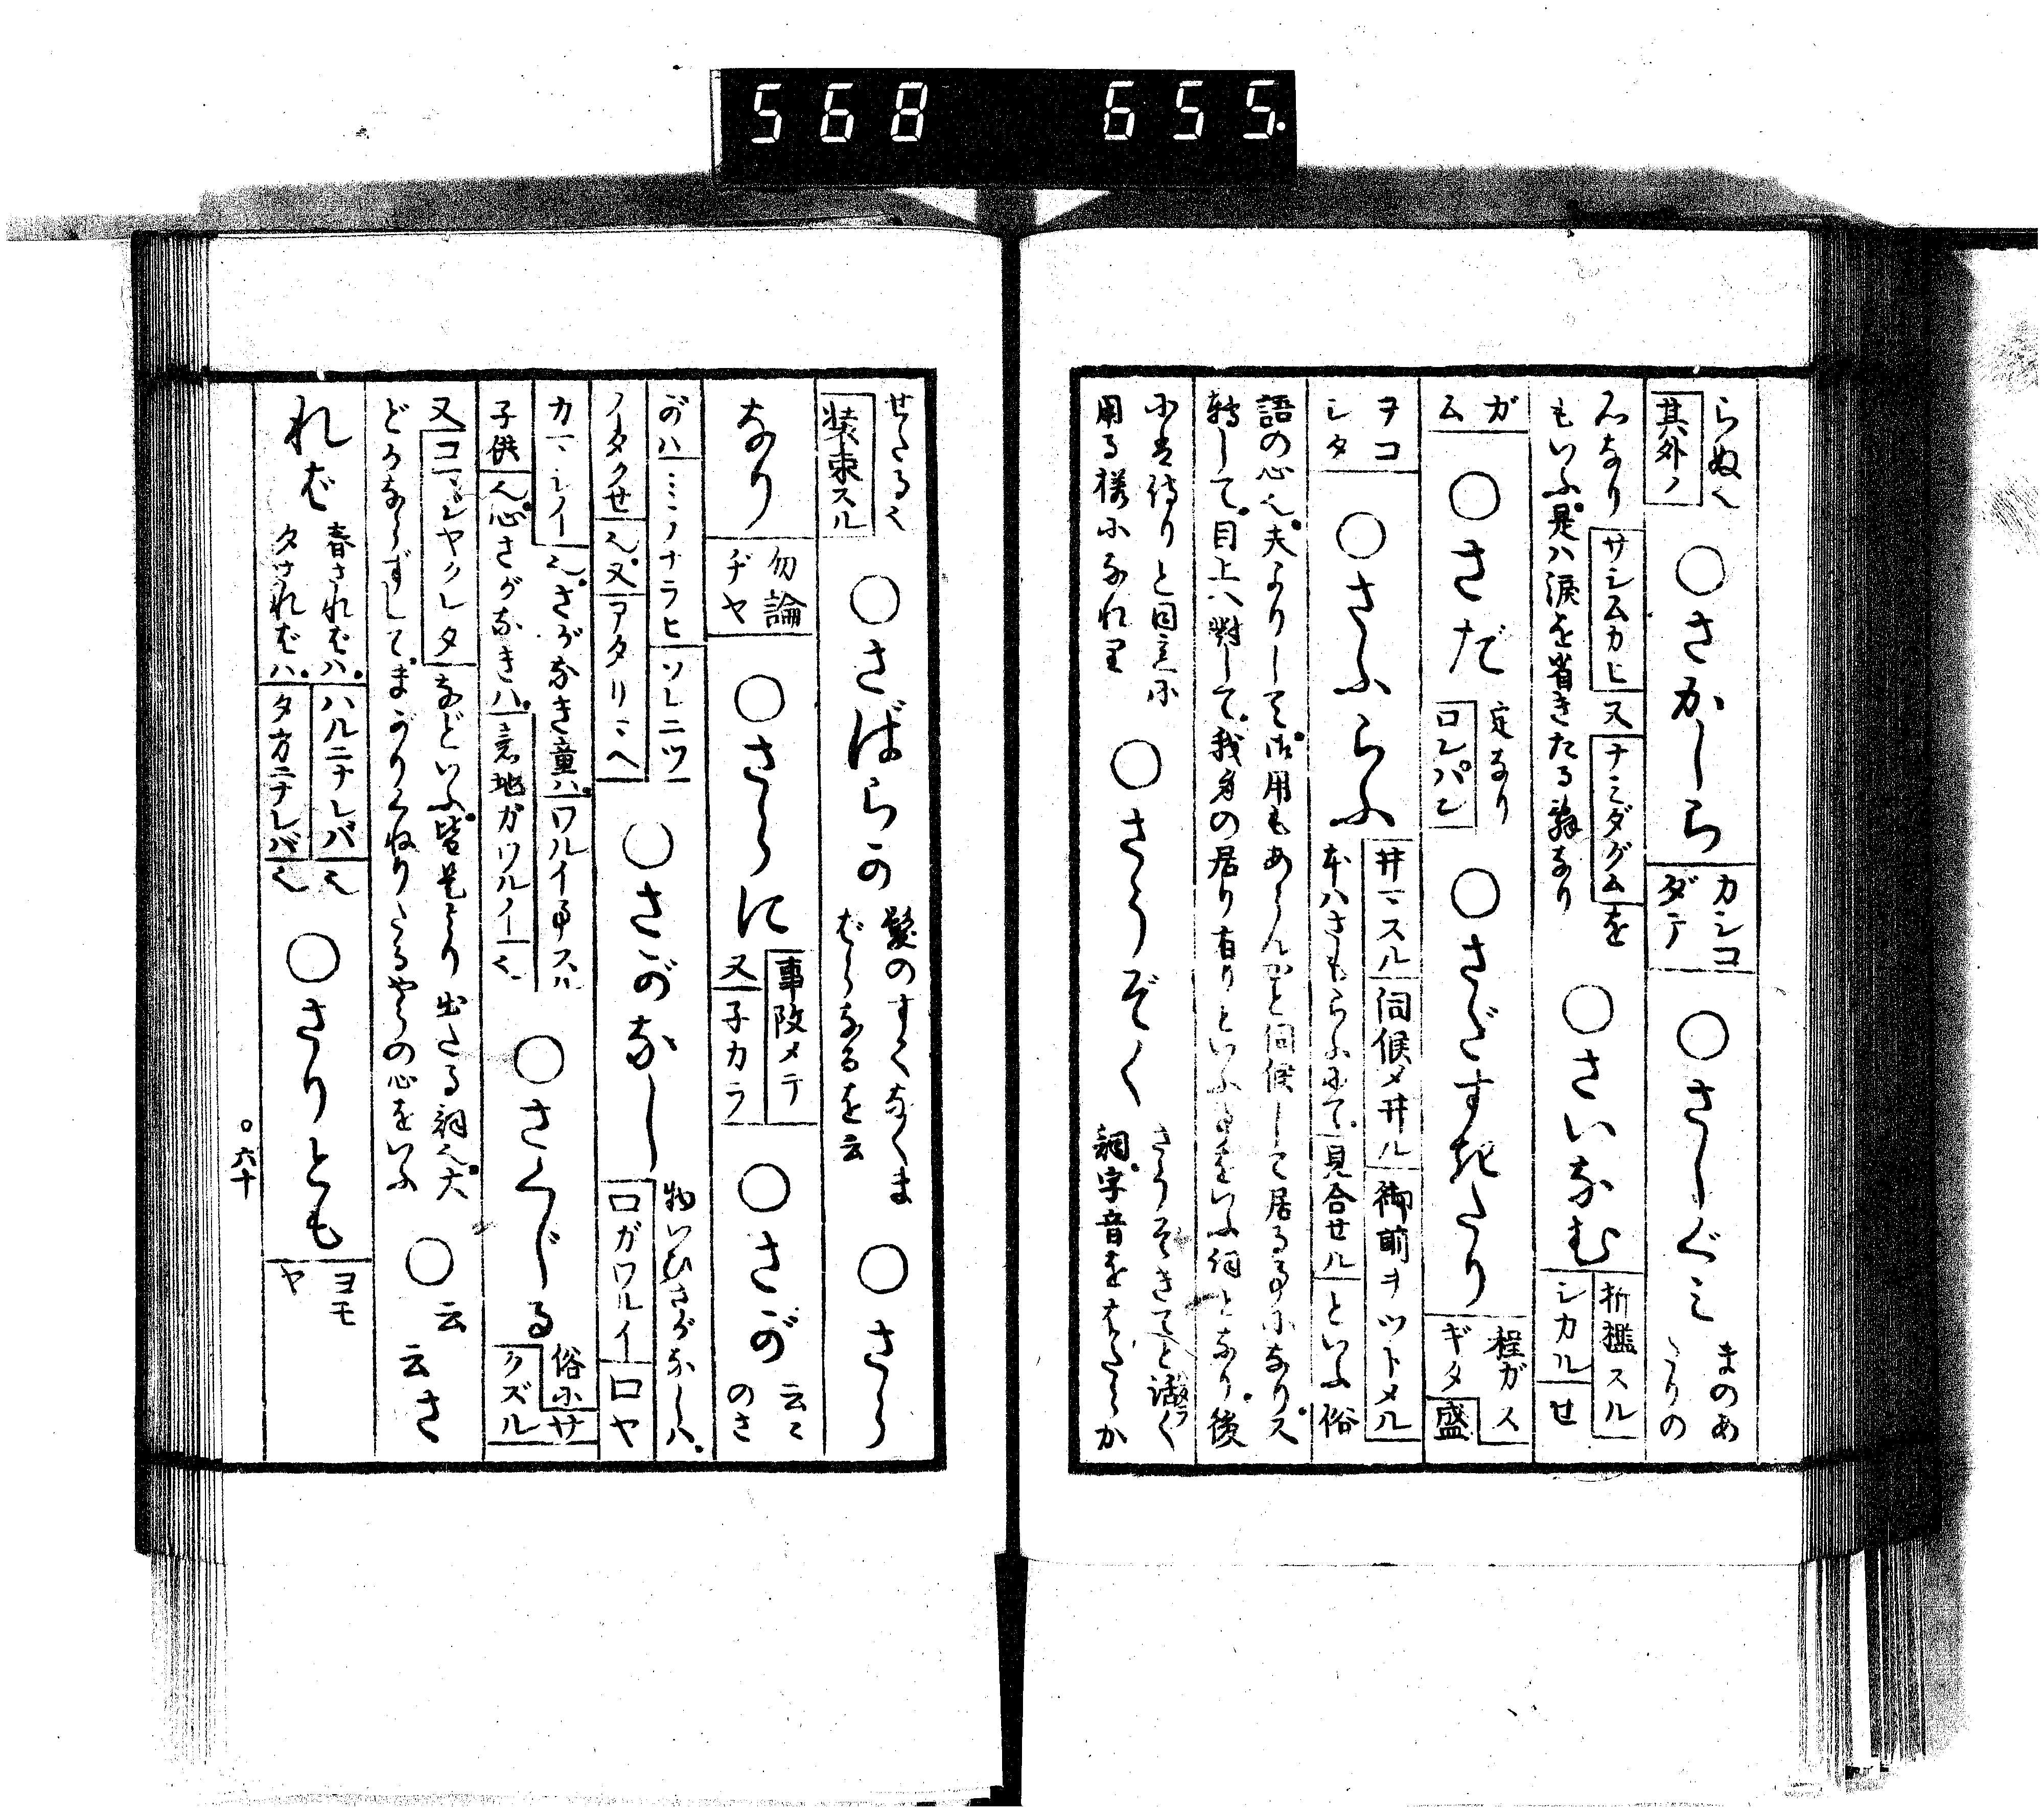 568 655.
らぬ也
其外ノ
○さかしら
カシコ
ダテ
○さしぐみ
まのあ
たりの
心なり サシムカヒ 又 ナミダグム を
もいふ是ハ涙を省きたる詞なり
○さいなむ
折檻スル
シカル せ
ガ
ム
○さだ
定なり
ロンパン
○さだすぎたり
程ガス
ギタ 盛
ヲコ
シタ
○さふらふ
井マスル 伺候メ井ル 御前ヲツトメル
本ハさもらふにて 見合セル といふ俗
語の心也夫よりして御用もあらんかと伺候して居る事になり又
轉じて目上ヘ對して我身の居り有りといふ事をいふ詞となり後
に在侍りと同意に
用る様になれり
○さうぞく
さうぞきてと活く
詞字音をはたらか
せたる也
装束スル
○さばらの
髪のすくなくま
ばらなるを云
○さら
なり
勿論
ヂヤ
○さらに
事改メテ
又 子カラ
○さが
云々
のさ
がハ ……ノナラヒ ソレニツ
ノイタクせ 也又 アタリマヘ
○さがなし
物いひさがなしハ
口ガワルイ 口ヤ
カマシイ 也さがなき童ハ ワルイ事スル
子供 也心さがなきハ 意地ガワルイ 也
○さくじる
俗にサ
クズル
又 コマシヤクレタ などいふ皆是より出たる詞也大
どかならずしてまがりくねりたるやうの心をいふ
○云
云さ
れば
春さればハ ハルニナレバ 也
夕さればハ 夕方ニナレバ 也
○さりとも
ヨモ
ヤ
○六十